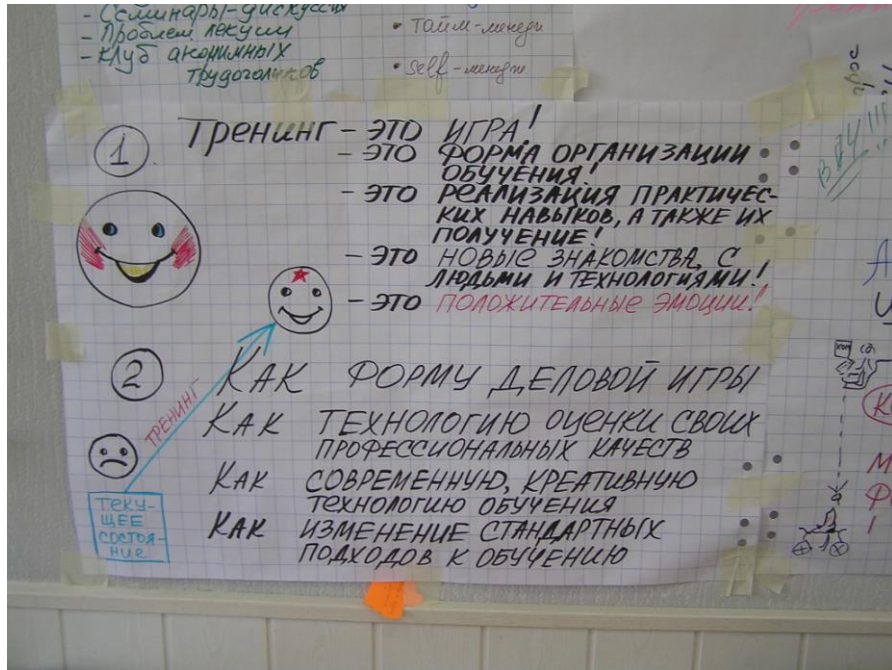 - Семинары-дискуссии
- Проблем лекции
- Клуб анонимных
трудоголиков
• тайм-менедж
• self-менедж
1
Тренинг - это ИГРА!
- это ФОРМА ОРГАНИЗАЦИИ
ОБУЧЕНИЯ!
- это РЕАЛИЗАЦИЯ ПРАКТИЧЕС-
КИХ НАВЫКОВ, А ТАКЖЕ ИХ
ПОЛУЧЕНИЕ!
- это НОВЫЕ ЗНАКОМСТВА, С
ЛЮДЬМИ И ТЕХНОЛОГИЯМИ!
- это ПОЛОЖИТЕЛЬНЫЕ ЭМОЦИИ!
2
КАК ФОРМУ ДЕЛОВОЙ ИГРЫ
КАК ТЕХНОЛОГИЮ ОЦЕНКИ СВОИХ
ПРОФЕССИОНАЛЬНЫХ КАЧЕСТВ
КАК СОВРЕМЕННУЮ, КРЕАТИВНУЮ
ТЕХНОЛОГИЮ ОБУЧЕНИЯ
КАК ИЗМЕНЕНИЕ СТАНДАРТНЫХ
ПОДХОДОВ К ОБУЧЕНИЮ
ТРЕНИНГ
ТЕКУ-
ЩЕЕ
СОСТОЯ-
НИЕ